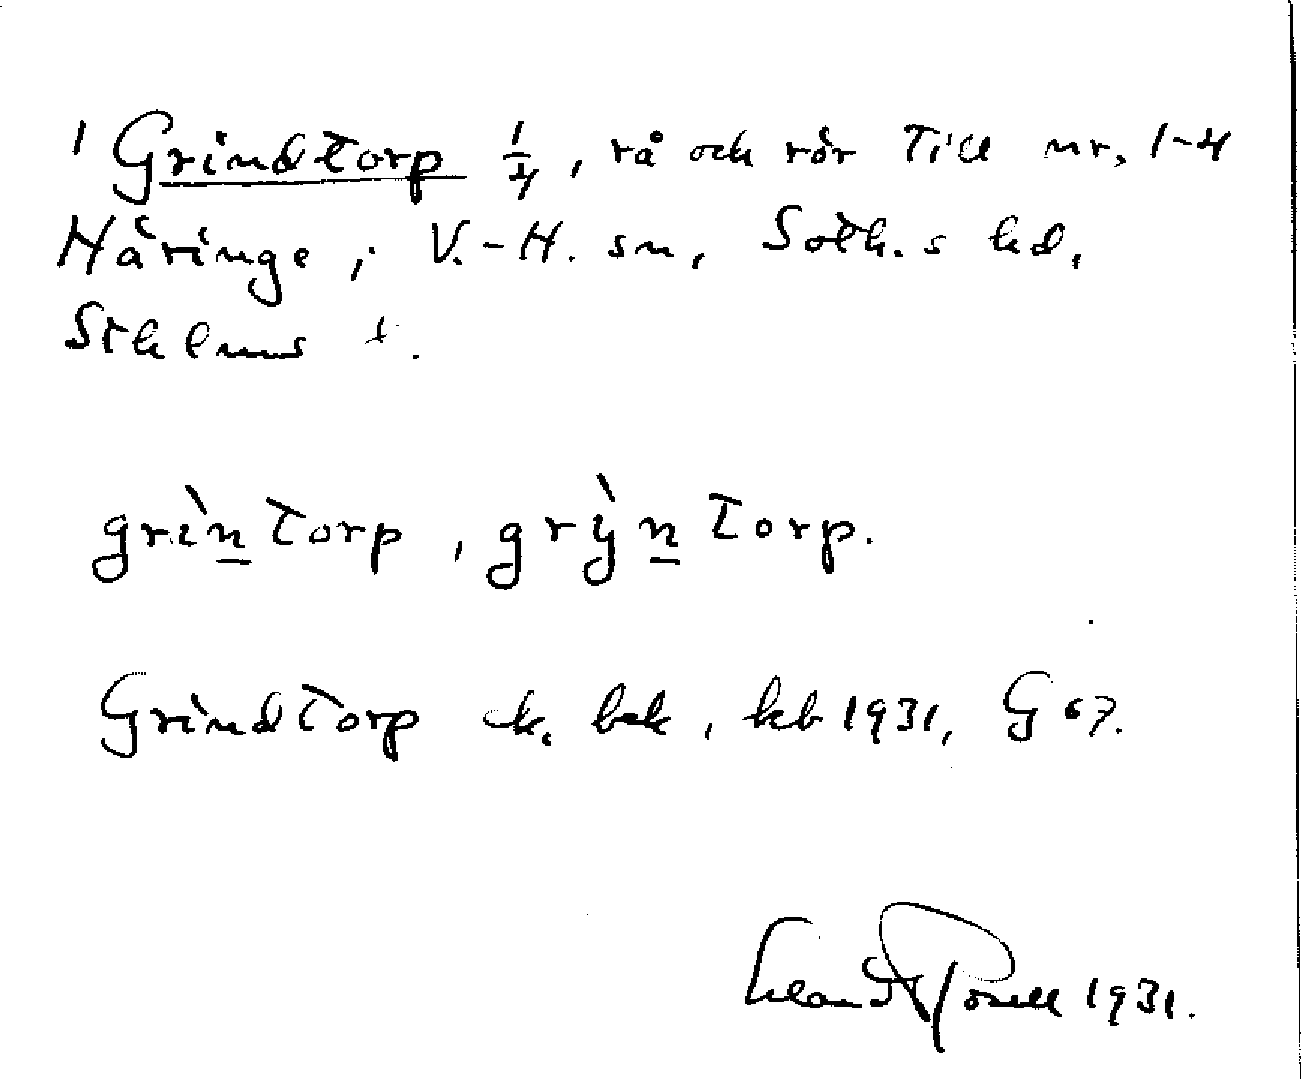 1 Grindtorp 1/4, rå och rör Till nr. 1-4
Häringe, V.-H. sn, Soth.s hd,
Sthlms l.
grìn̲torp, grỳn̲torp.
Grindtorp ek. bok, kb 1931, G 67.
1931.